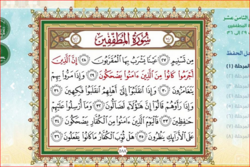 سُورَةُ المُطَفِّفِينَ
مِن تَسْنِيمٍ ٢٧ عَيْنًا يَشْرَبُ بِهَا ٱلْمُقَرَّبُونَ ٢٨ إِنَّ ٱلَّذِينَ
أَجْرَمُوا۟ كَانُوا۟ مِنَ ٱلَّذِينَ ءَامَنُوا۟ يَضْحَكُونَ ٢٩ وَإِذَا مَرُّوا۟ بِهِمْ
يَتَغَامَزُونَ ٣٠ وَإِذَا ٱنقَلَبُوٓا۟ إِلَىٰٓ أَهْلِهِمُ ٱنقَلَبُوا۟ فَكِهِينَ ٣١
وَإِذَا رَأَوْهُمْ قَالُوٓا۟ إِنَّ هَـٰٓؤُلَآءِ لَضَآلُّونَ ٣٢ وَمَآ أُرْسِلُوا۟ عَلَيْهِمْ
حَـٰفِظِينَ ٣٣ فَٱلْيَوْمَ ٱلَّذِينَ ءَامَنُوا۟ مِنَ ٱلْكُفَّارِ يَضْحَكُونَ ٣٤
عَلَى ٱلْأَرَآئِكِ يَنظُرُونَ ٣٥ هَلْ ثُوِّبَ ٱلْكُفَّارُ مَا كَانُوا۟ يَفْعَلُونَ ٣٦